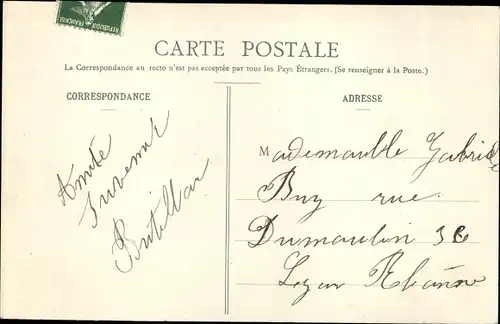 REPUBLIQUE FRANÇAISE
CARTE POSTALE
La Correspondance au recto n'est pas acceptée par tous les Pays Étrangers. (Se renseigner à la Poste.)
CORRESPONDANCE
ADRESSE
Amitié
Mademoiselle Gabriele
Buy rue
Dumoulin 36